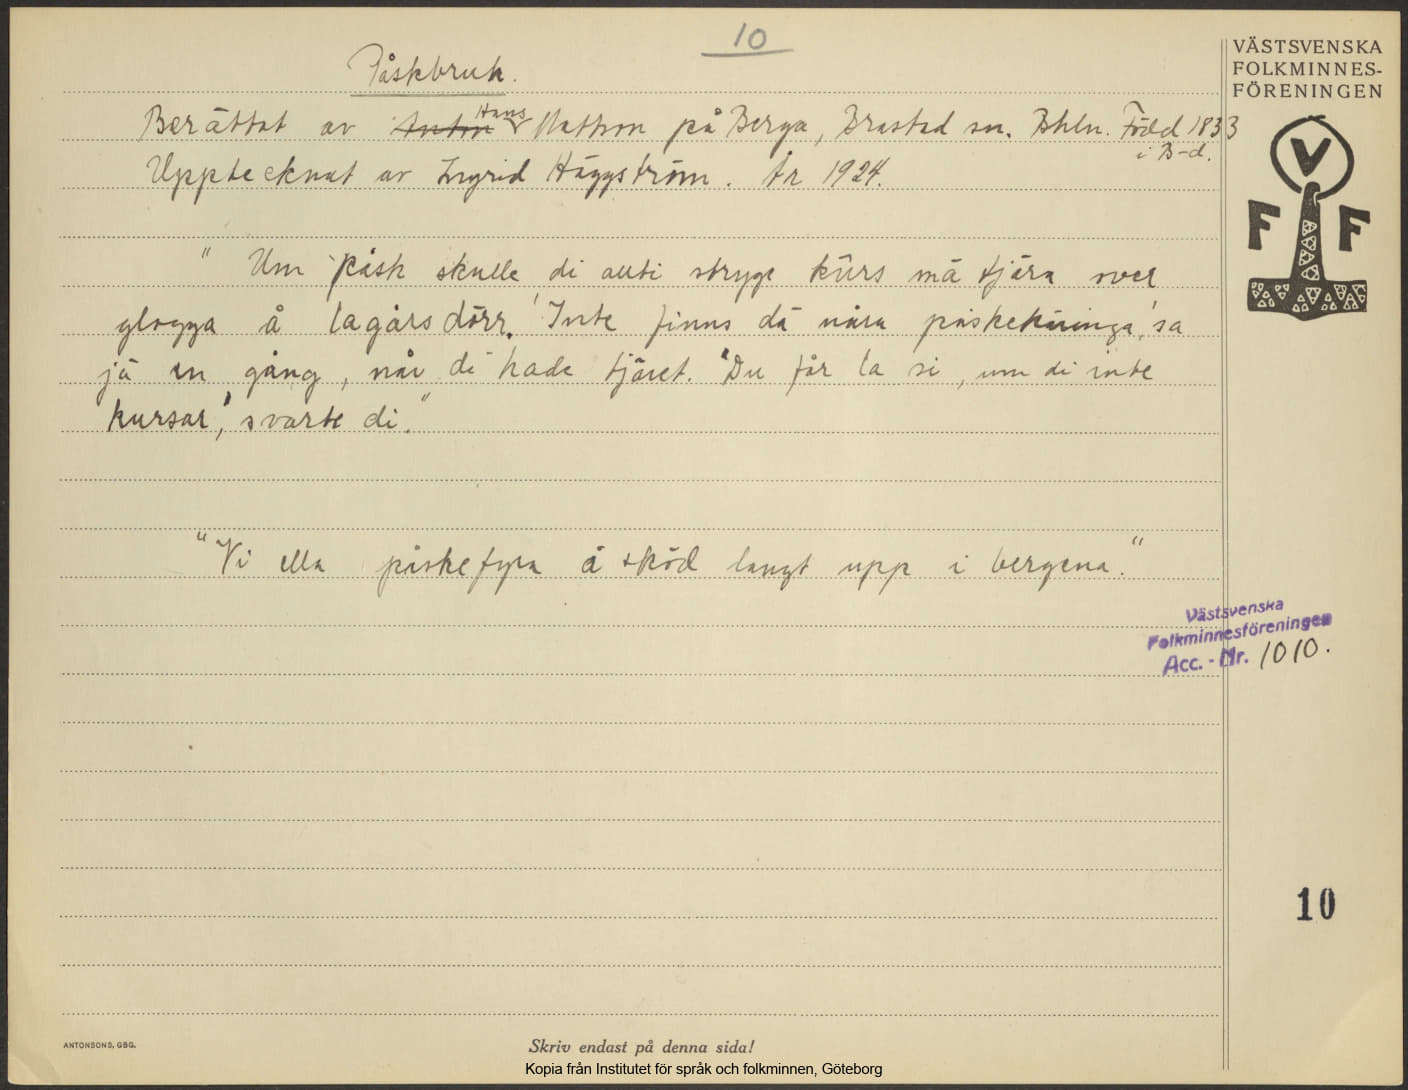 10
Påskbruk.
Berättat av Anton Hans Mattson på Berga, Brastad sn. Bhln. Född 1833
i B-d.
Upptecknat av Ingrid Häggström. År 1924.
" Um påsk skulle di allti stryge kurs mä tjära over
glogga å lagårsdörr. 'Inte finns dä nåra påskekäringa', sa
jä en gång, når di hade tjäret. 'Du får la si, um di inte
kursar', svarte di."
"Vi ella påskefyra å sköd langt upp i bergena."
VÄSTSVENSKA
FOLKMINNES-
FÖRENINGEN
V
F F
Västsvenska
Folkminnesföreningen
Acc. - Nr. 1010.
10
ANTONSONS, GBG.
Skriv endast på denna sida!
Kopia från Institutet för språk och folkminnen, Göteborg